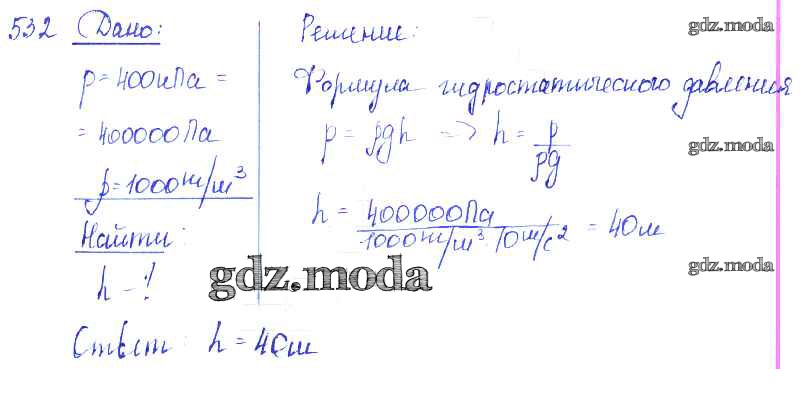 532 Дано:
p = 400кПа =
= 400000Па
ρ = 1000кг/м³
Найти:
h - ?
Решение:
Формула гидростатического давления
p = ρgh => h = p/ρg
h = 400000Па/1000кг/м³·10м/с² = 40м
Ответ: h = 40м
gdz.moda
gdz.moda
gdz.moda
gdz.moda